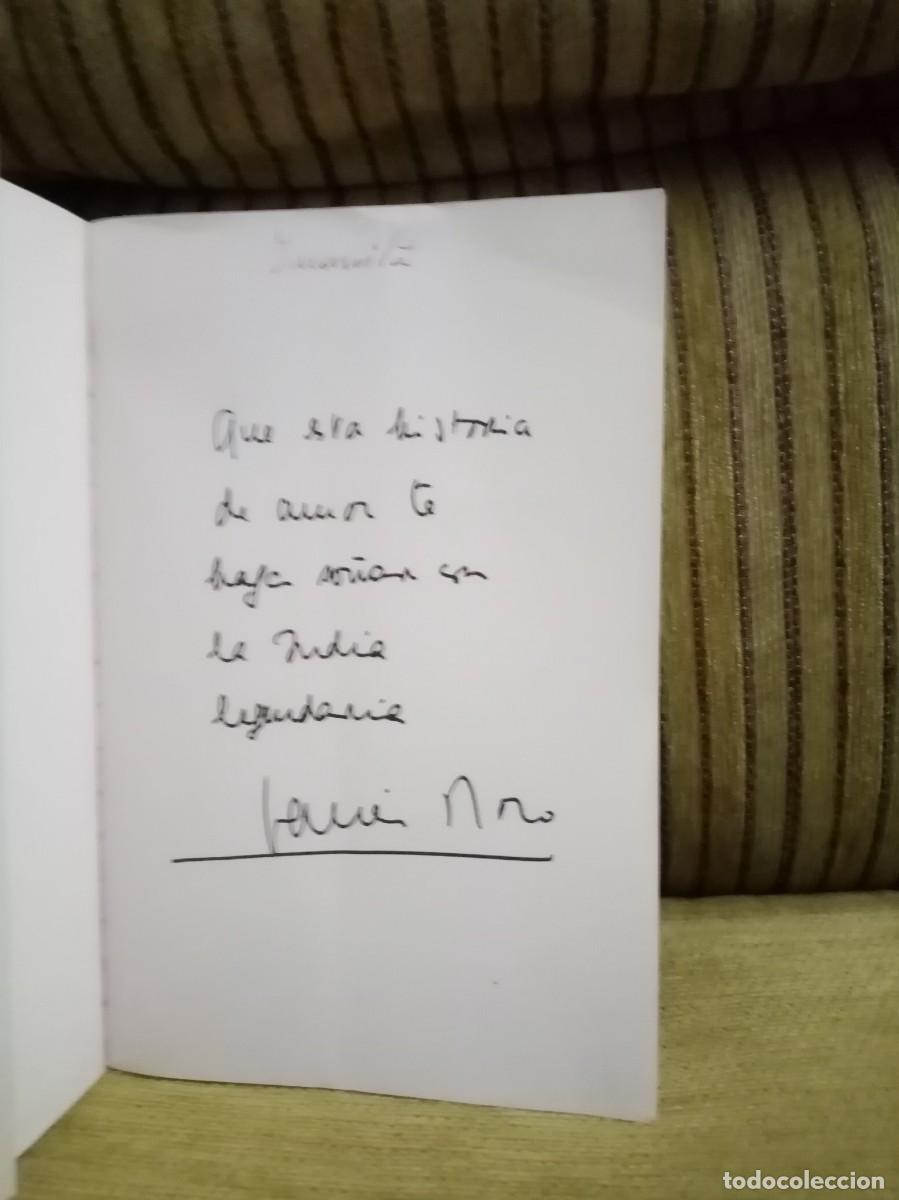 Juanita
Que esta historia
de amor te
haga soñar con
la India
legendaria
Javier Moro
todocoleccion